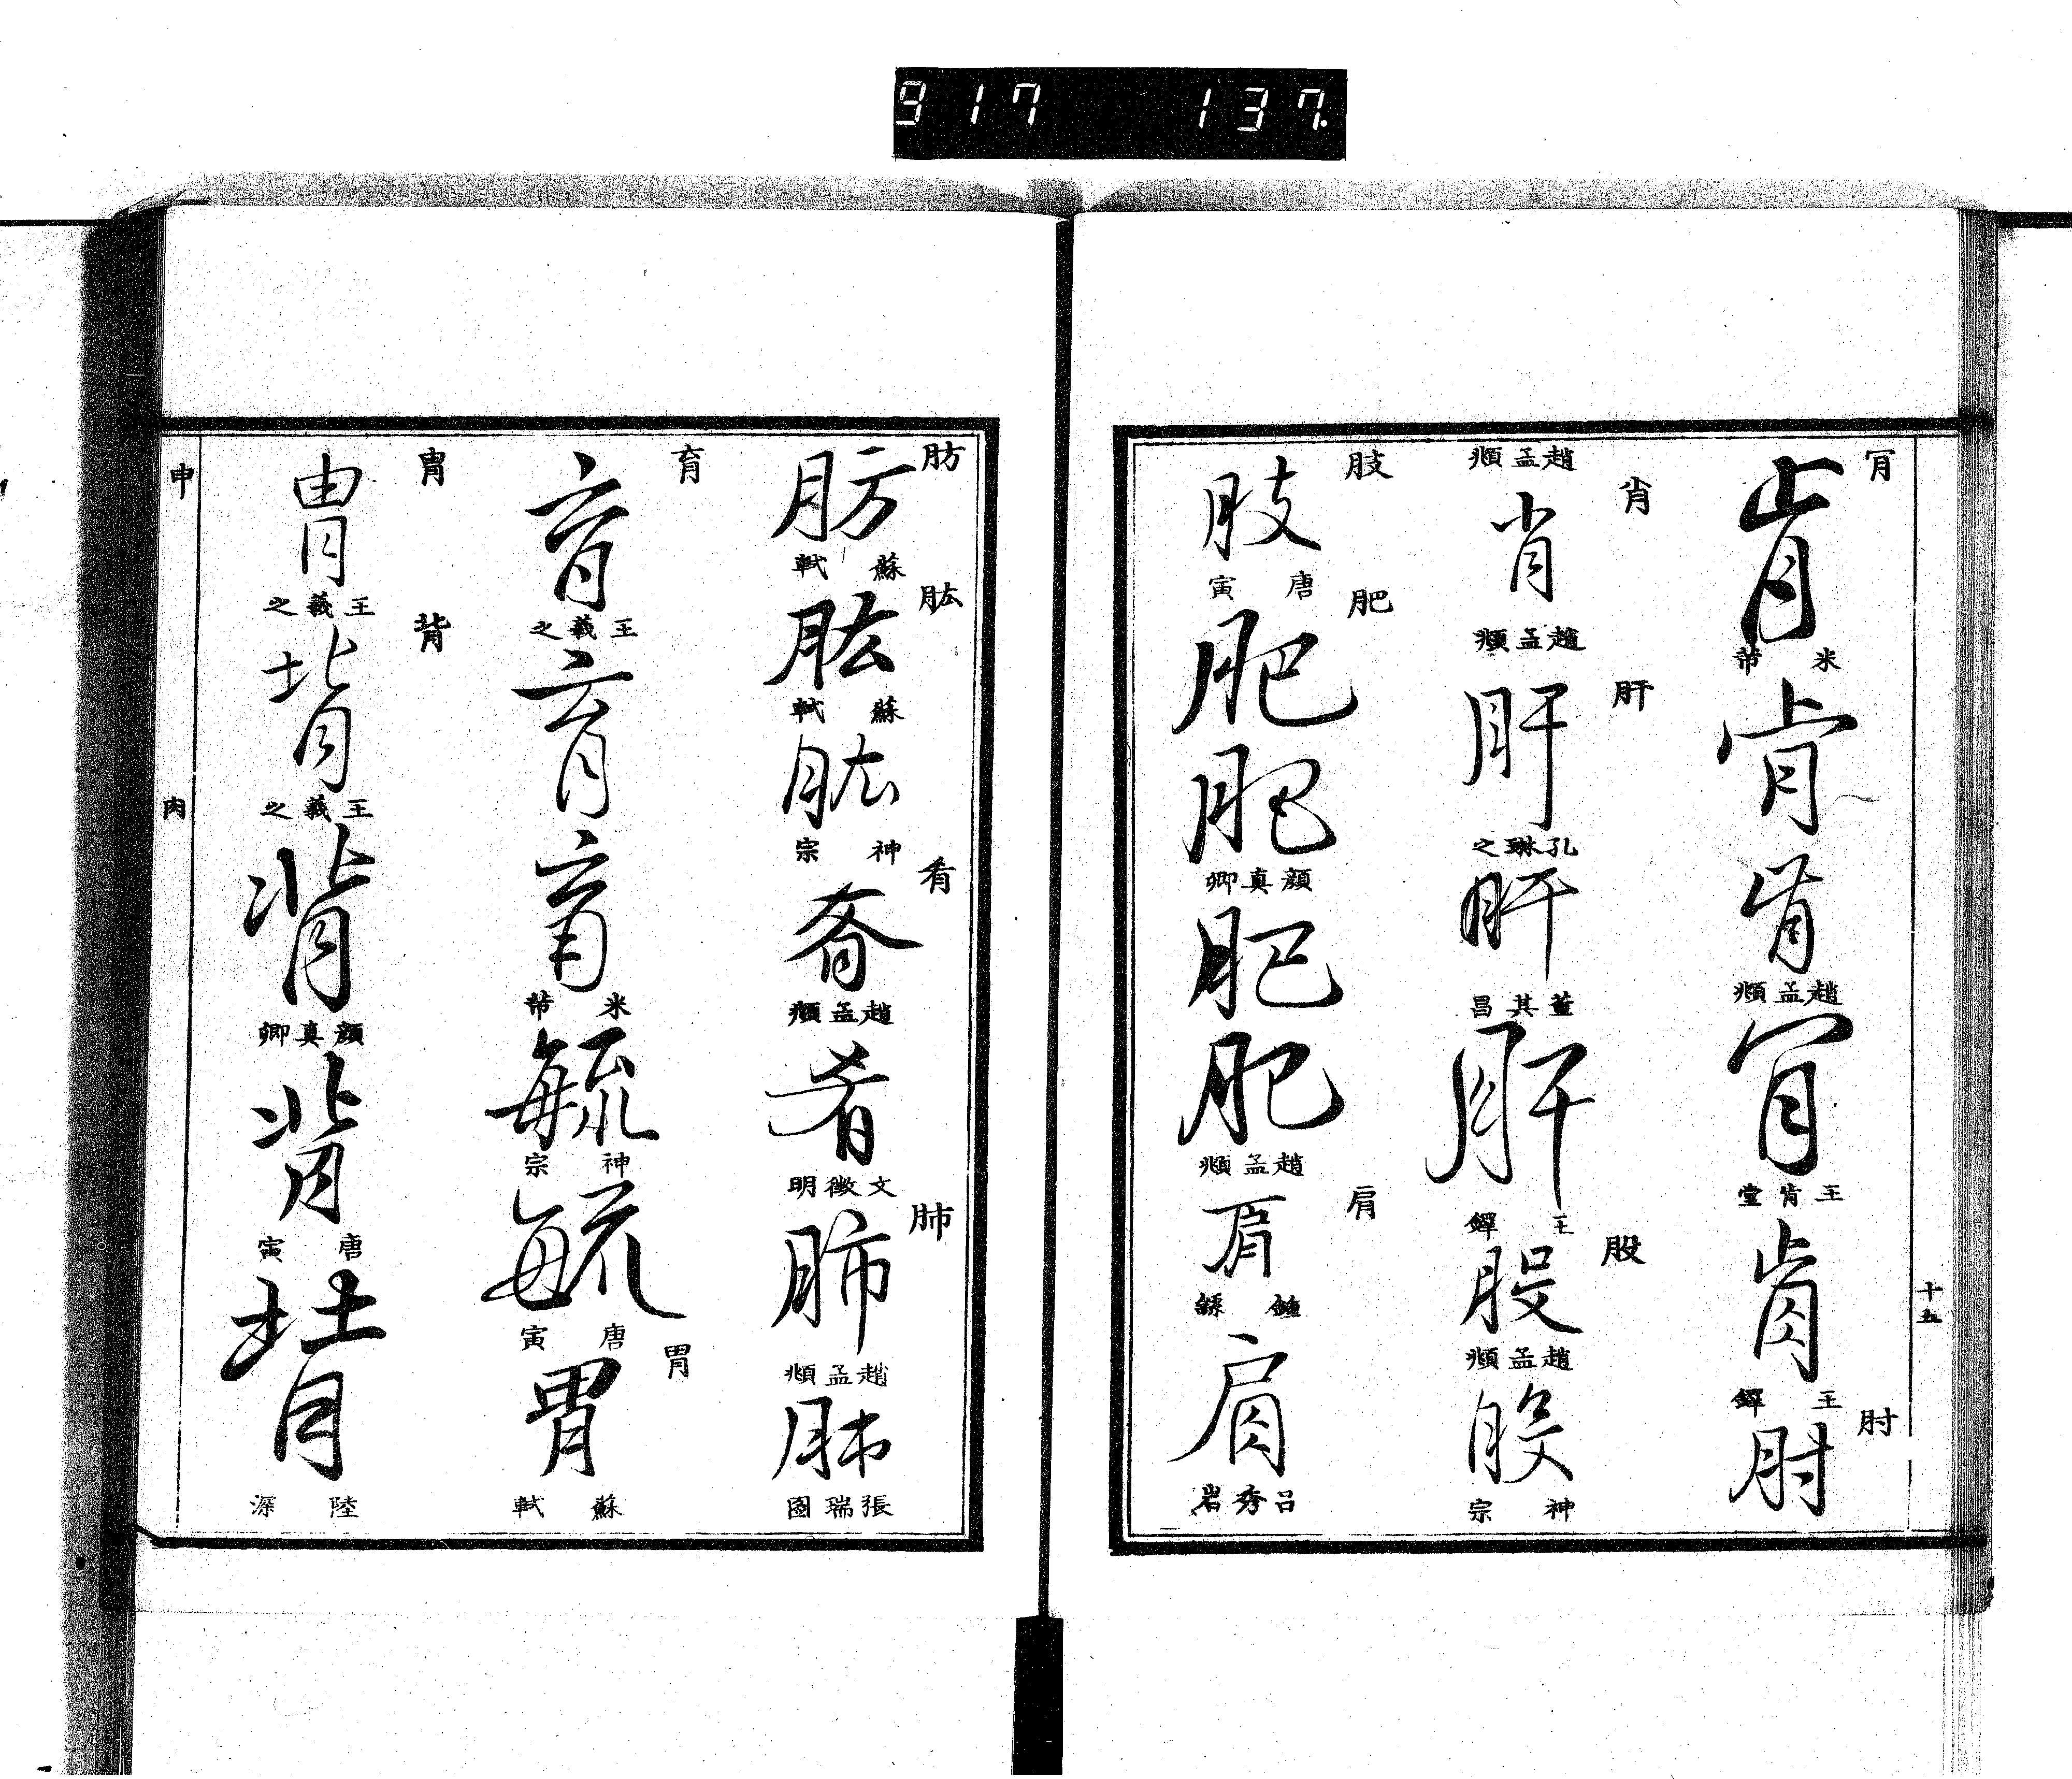 917 137.
十五
肎
肯
米芾
肯
肯
趙孟頫
肎
王肯堂
肯
王鐸
肘
肘
趙孟頫
肖
肖
趙孟頫
肝
肝
孔琳之
肝
董其昌
肝
王鐸
股
股
趙孟頫
股
神宗
肢
肢
唐寅
肥
肥
肥
顏真卿
肥
肥
趙孟頫
肩
肩
鍾繇
肩
呂秀岩
肪
肪
蘇軾
肱
肱
蘇軾
肱
神宗
肴
肴
趙孟頫
肴
文徵明
肺
肺
趙孟頫
肺
張瑞圖
育
育
王羲之
育
育
米芾
毓
神宗
毓
唐寅
胃
胃
蘇軾
胄
胄
王羲之
背
背
王羲之
背
顏真卿
背
唐寅
背
陸深
申
肉